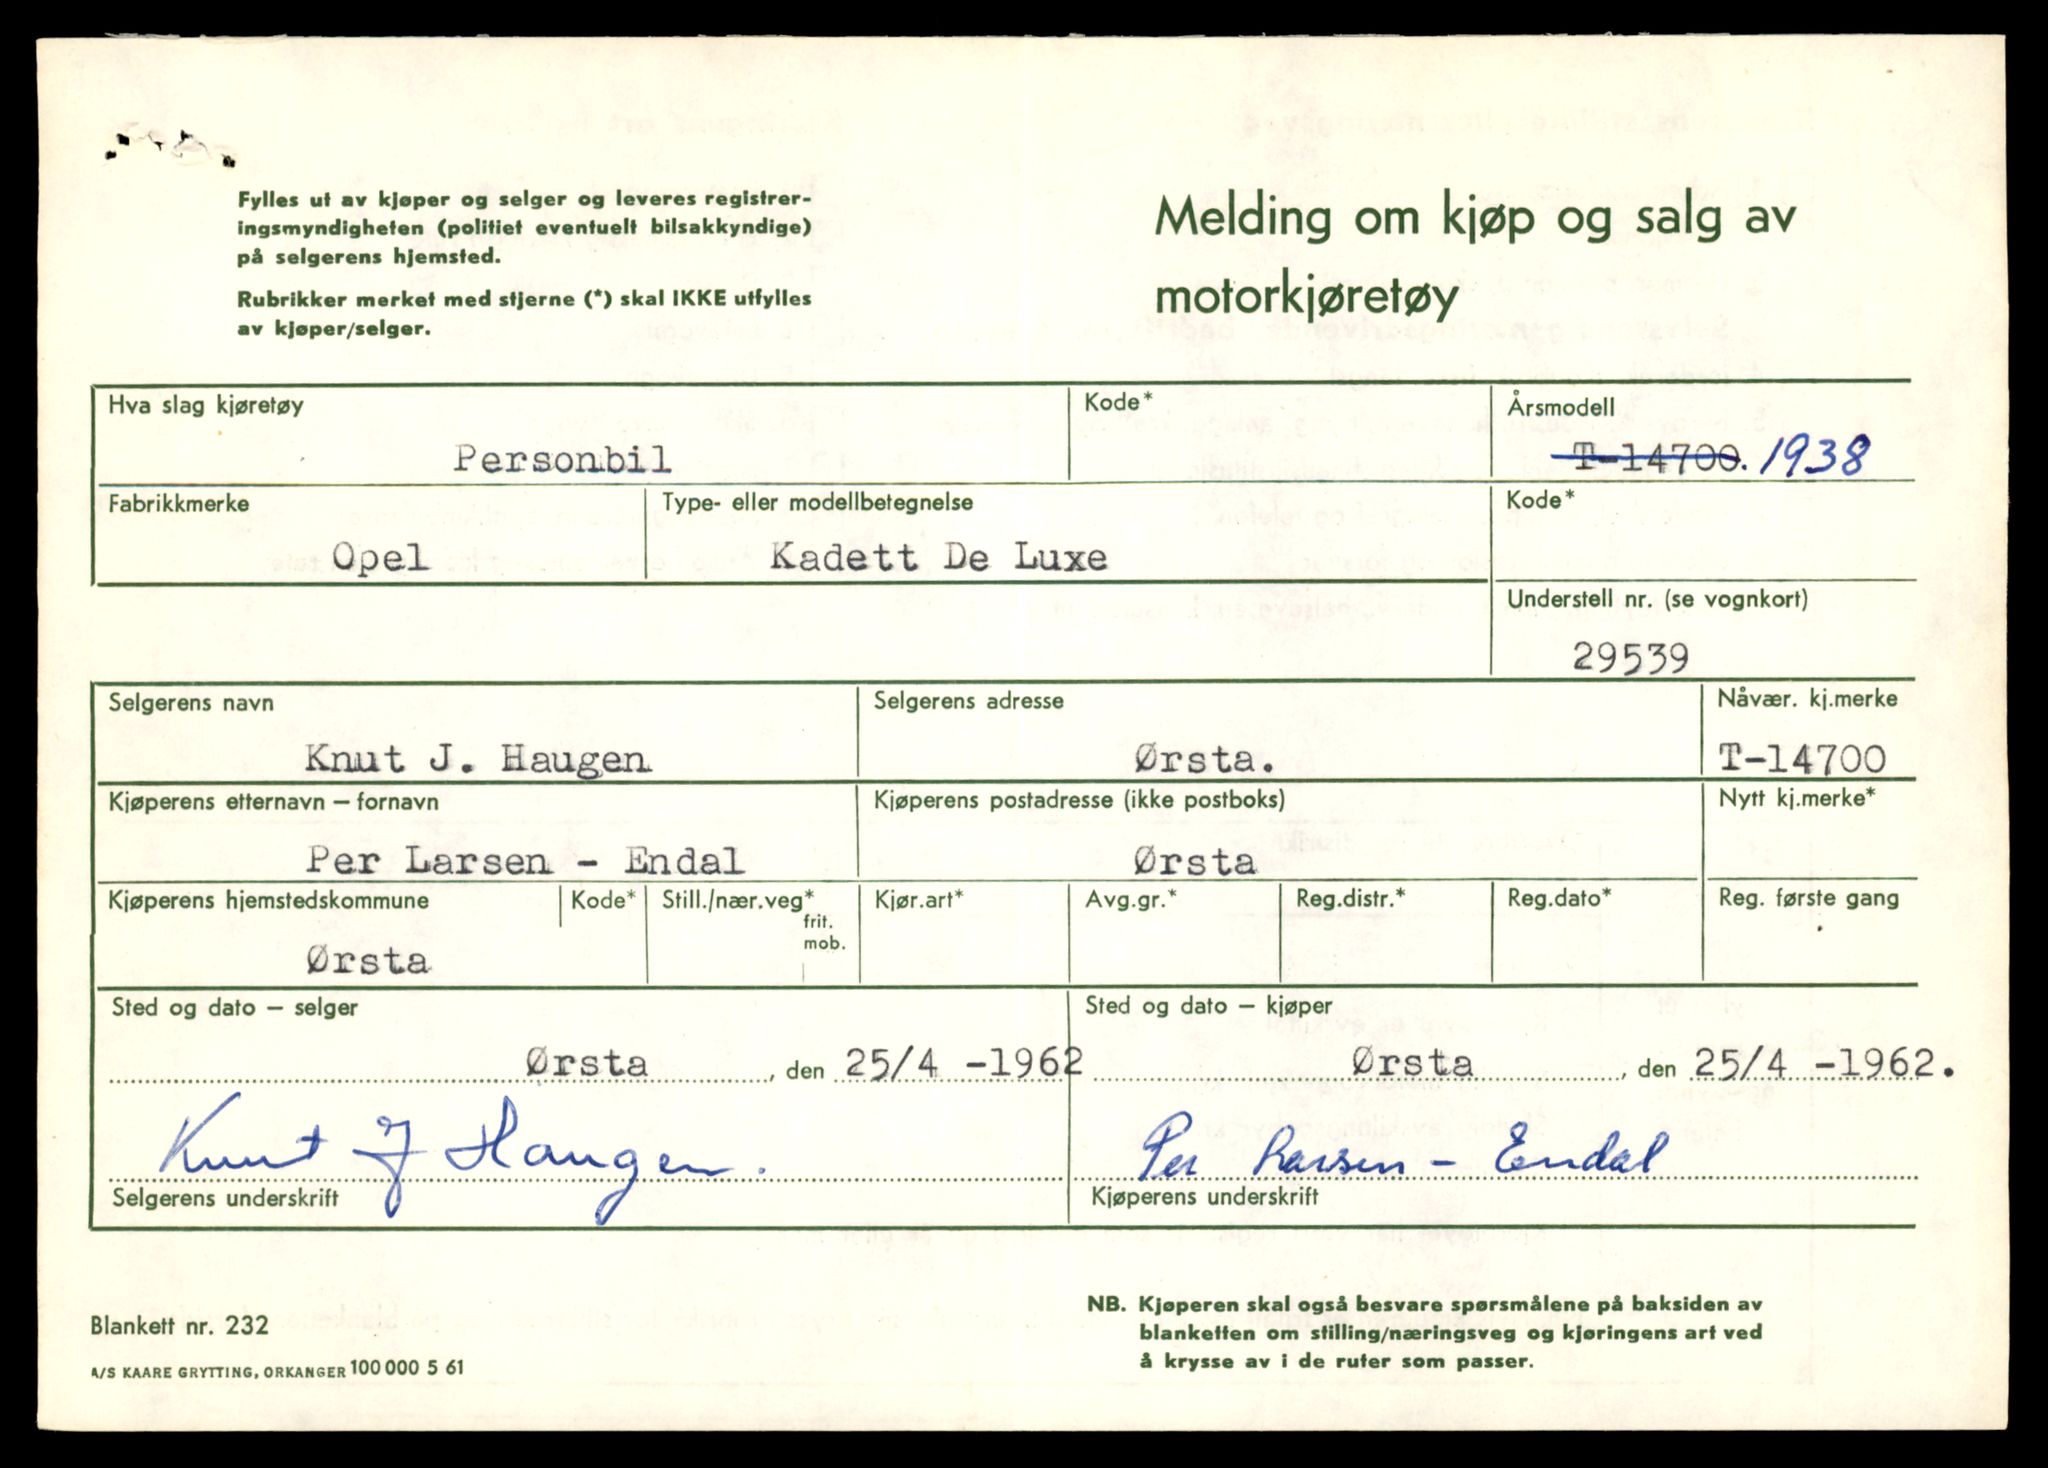 Fylles ut av kjøper og selger og leveres registrer-
ingsmyndigheten (politiet eventuelt bilsakkyndige)
på selgerens hjemsted.
Rubrikker merket med stjerne (*) skal IKKE utfylles
av kjøper/selger.
Melding om kjøp og salg av
motorkjøretøy
Hva slag kjøretøy
Kode*
Årsmodell
Personbil
T-14700. 1938
Fabrikkmerke
Type- eller modellbetegnelse
Kode*
Opel
Kadett De Luxe
Understell nr. (se vognkort)
29539
Selgerens navn
Selgerens adresse
Nåvær. kj.merke
Knut J. Haugen
Ørsta.
T-14700
Kjøperens etternavn – fornavn
Kjøperens postadresse (ikke postboks)
Nytt kj.merke*
Per Larsen - Endal
Ørsta
Kjøperens hjemstedskommune
Kode*
Still./nær.veg*
frit.
mob.
Kjør.art*
Avg.gr.*
Reg.distr.*
Reg.dato*
Reg. første gang
Ørsta
Sted og dato – selger
Sted og dato – kjøper
Ørsta, den 25/4 -1962
Ørsta, den 25/4 -1962.
Knut J Haugen.
Per Larsen - Endal
Selgerens underskrift
Kjøperens underskrift
Blankett nr. 232
A/S KAARE GRYTTING, ORKANGER 100 000 5 61
NB. Kjøperen skal også besvare spørsmålene på baksiden av
blanketten om stilling/næringsveg og kjøringens art ved
å krysse av i de ruter som passer.